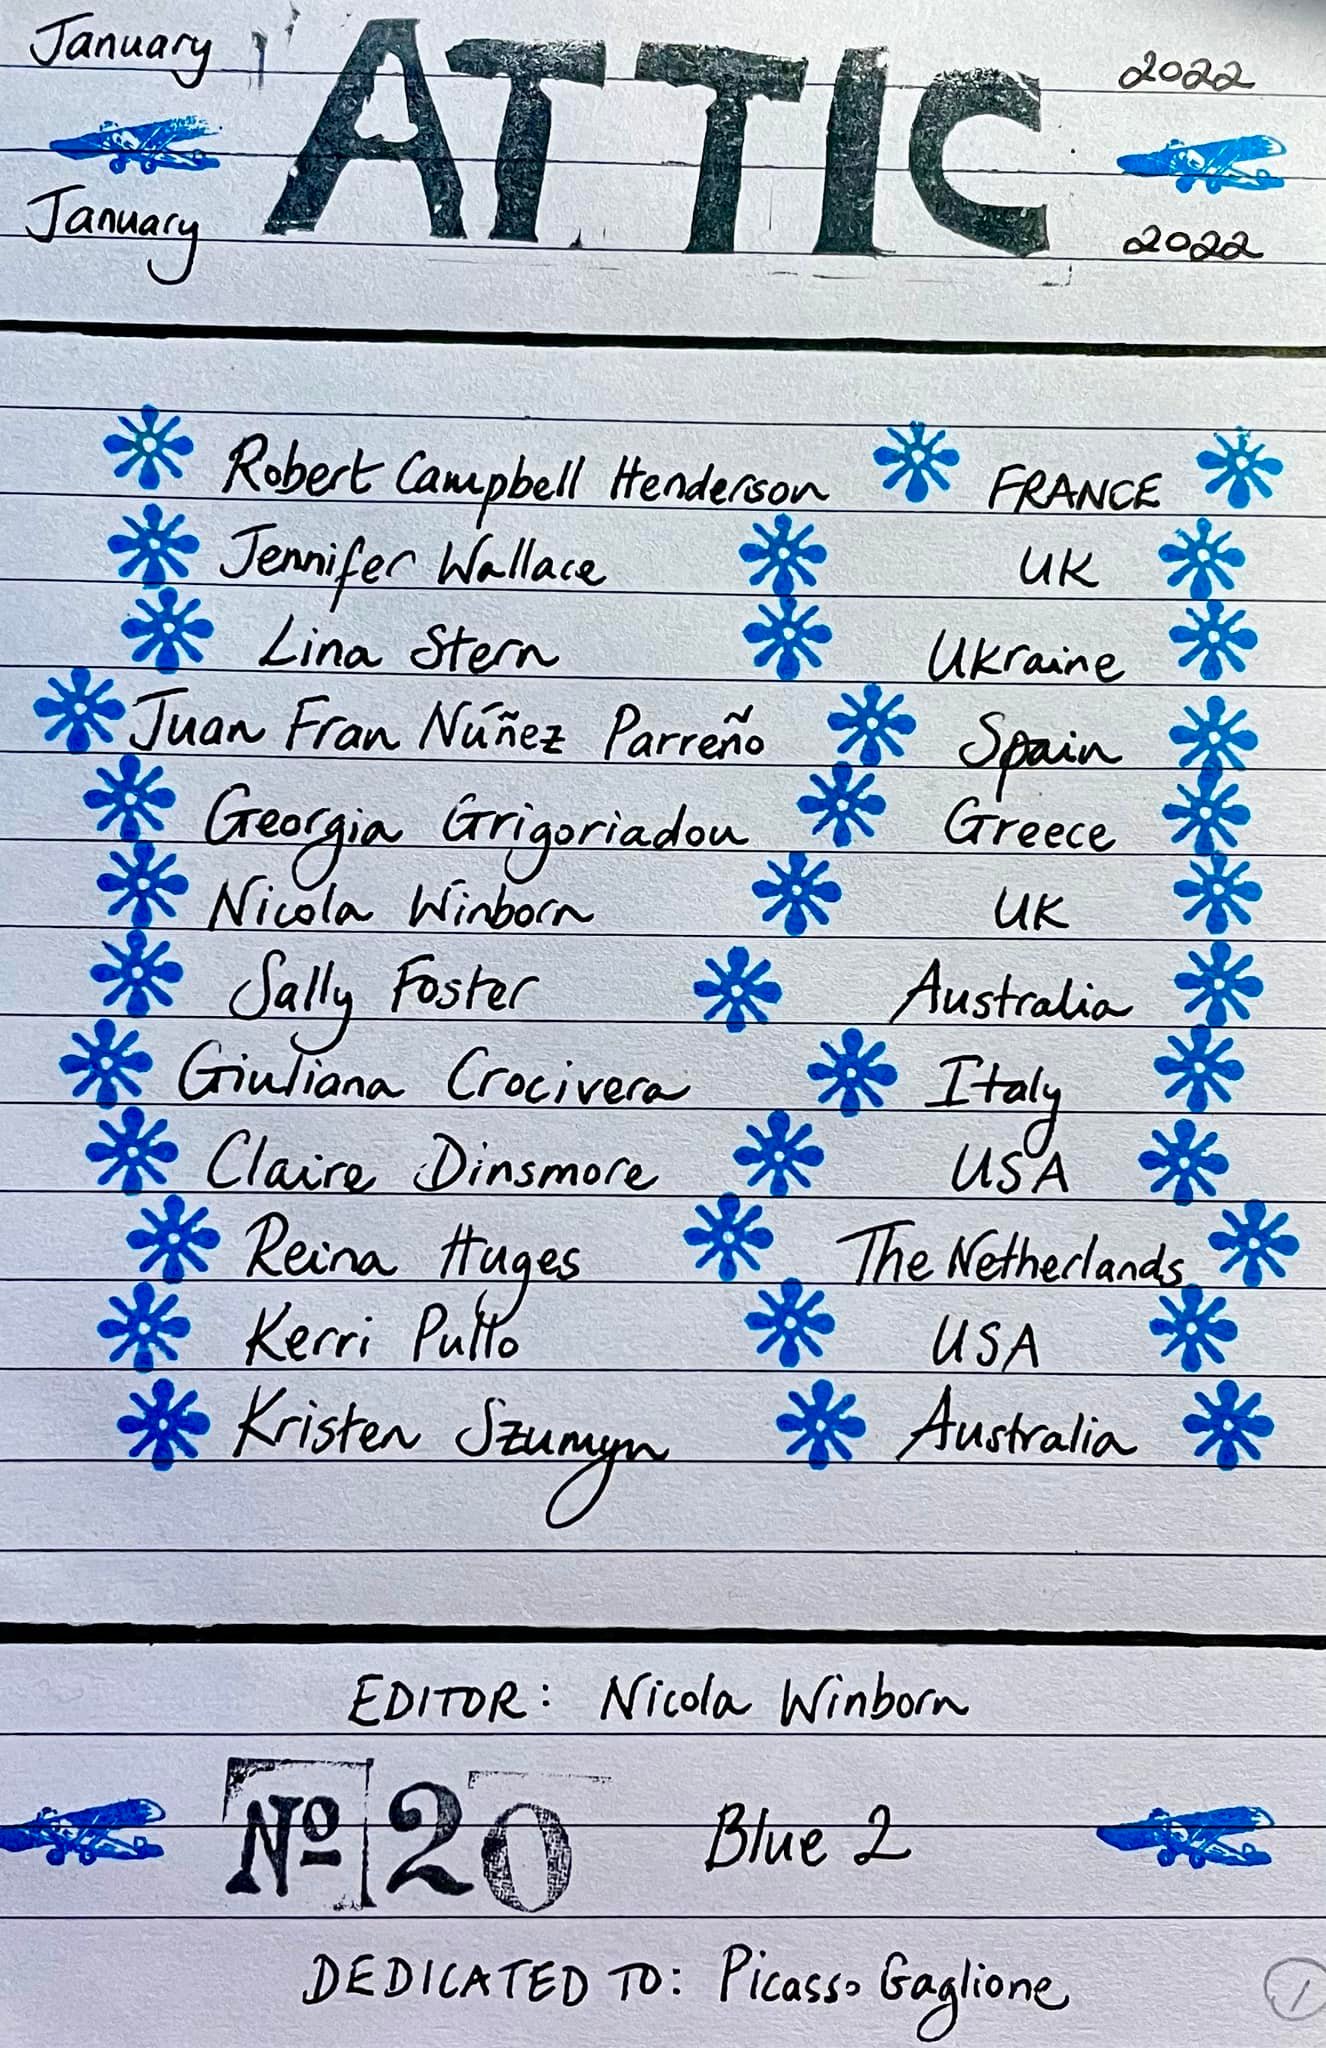 January ATTIC 2022
January 2022
Robert Campbell Henderson FRANCE
Jennifer Wallace UK
Lina Stern Ukraine
Juan Fran Núñez Parreño Spain
Georgia Grigoriadou Greece
Nicola Winborn UK
Sally Foster Australia
Giuliana Crocivera Italy
Claire Dinsmore USA
Reina Huges The Netherlands
Kerri Pullo USA
Kristen Szumyn Australia
EDITOR: Nicola Winborn
Nº 20 Blue 2
DEDICATED TO: Picasso Gaglione
1